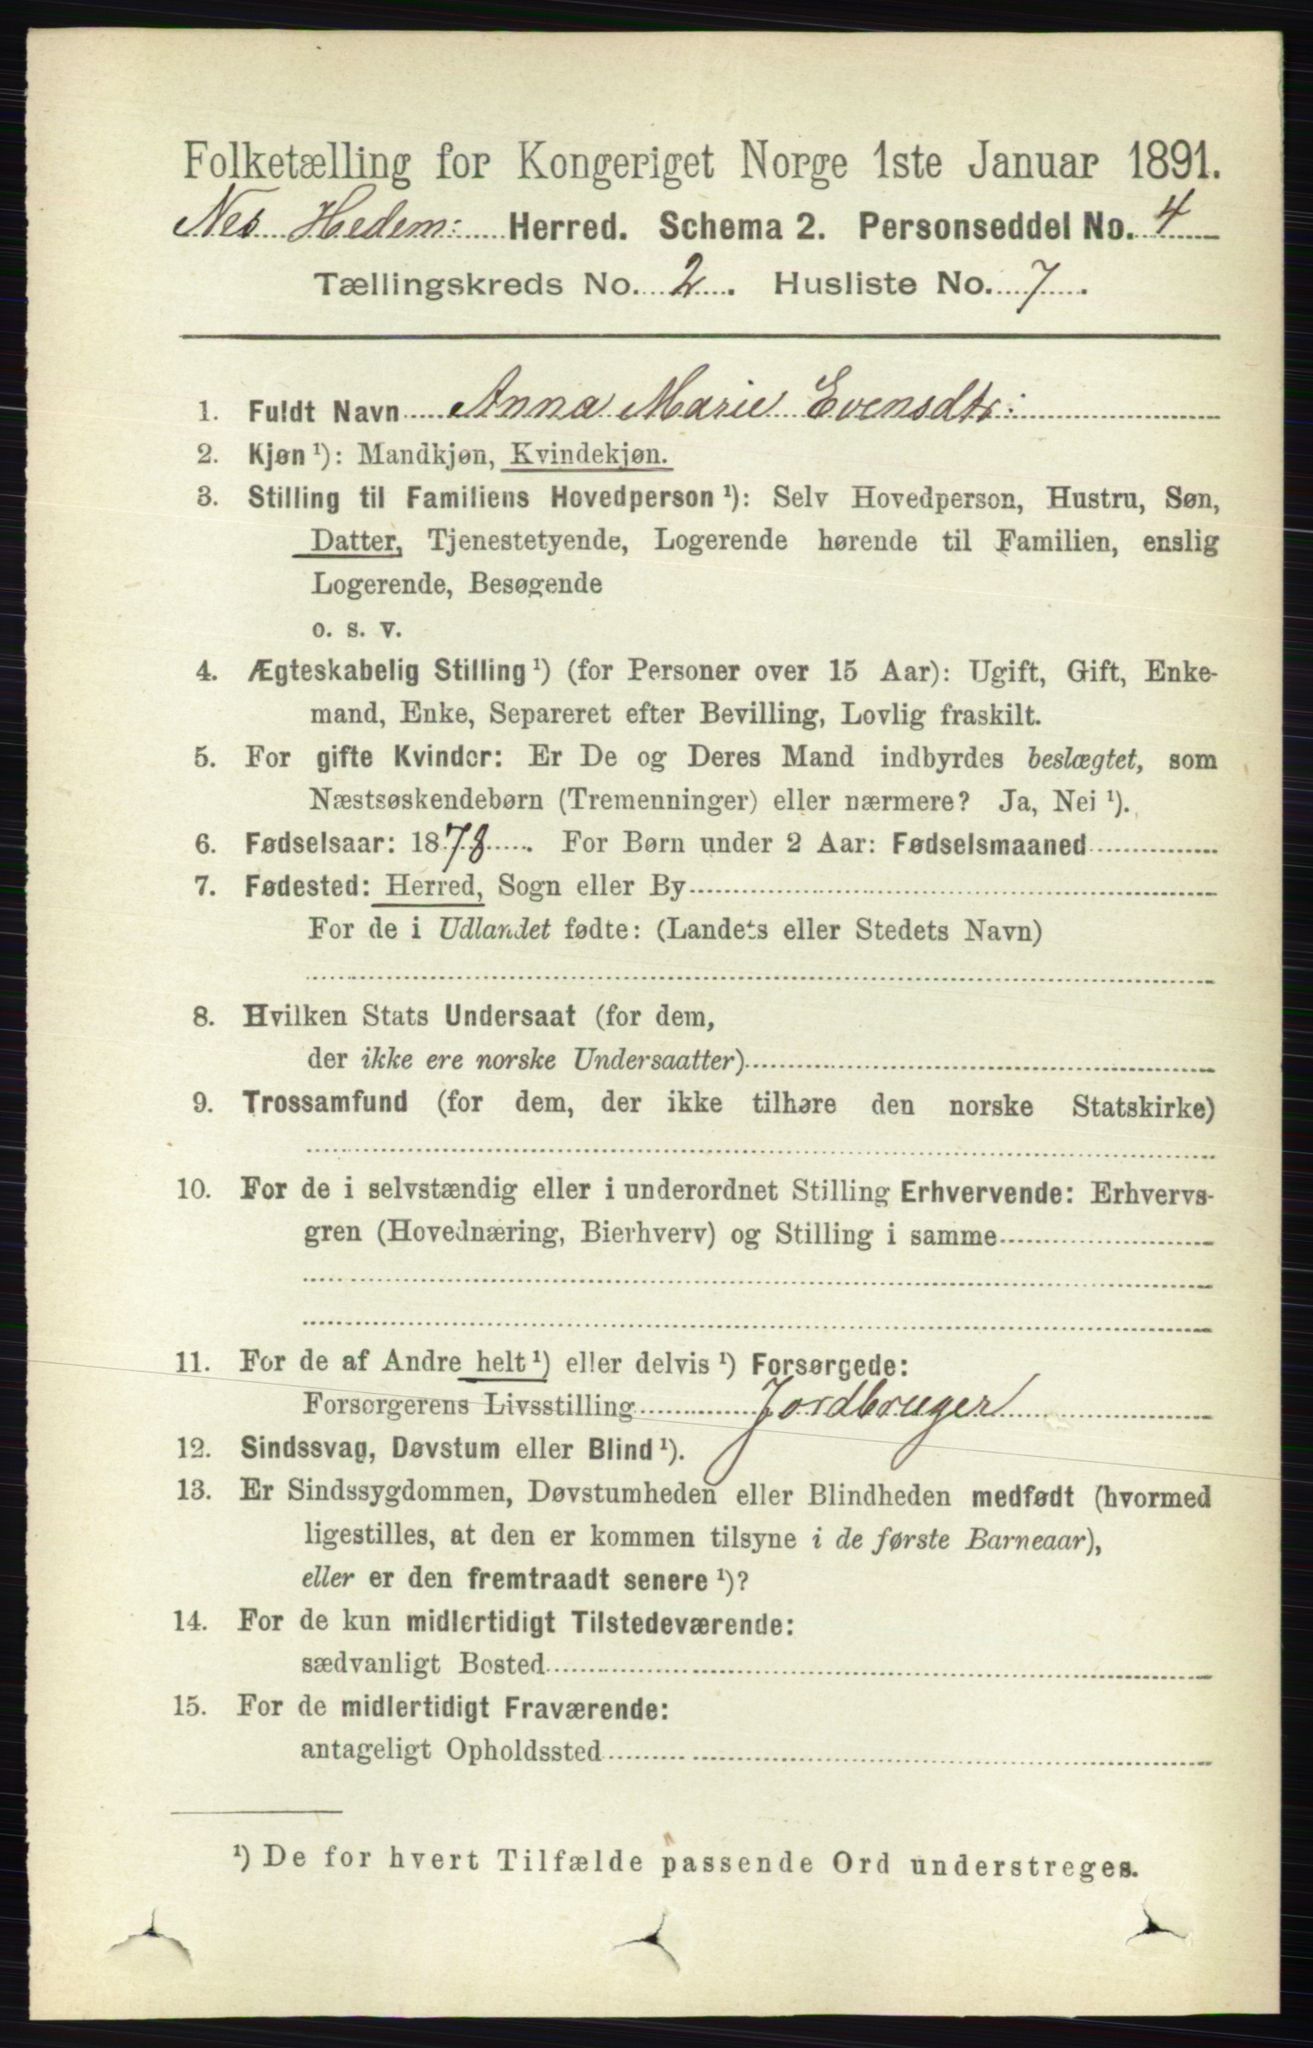 Folketælling for Kongeriget Norge 1ste Januar 1891.
Nes Hedem: Herred. Schema 2. Personseddel No. 4
Tællingskreds No. 2. Husliste No. 7.
1. Fuldt Navn Anna Marie Evensdtr:
2. Kjøn ¹): Mandkjøn, Kvindekjøn.
3. Stilling til Familiens Hovedperson ¹): Selv Hovedperson, Hustru, Søn,
Datter, Tjenestetyende, Logerende hørende til Familien, enslig
Logerende, Besøgende
o. s. v.
4. Ægteskabelig Stilling ¹) (for Personer over 15 Aar): Ugift, Gift, Enke-
mand, Enke, Separeret efter Bevilling, Lovlig fraskilt.
5. For gifte Kvinder: Er De og Deres Mand indbyrdes beslægtet, som
Næstsøskendebørn (Tremenninger) eller nærmere? Ja, Nei ¹).
6. Fødselsaar: 1878. For Børn under 2 Aar: Fødselsmaaned
7. Fødested: Herred, Sogn eller By
For de i Udlandet fødte: (Landets eller Stedets Navn)
8. Hvilken Stats Undersaat (for dem,
der ikke ere norske Undersaatter)
9. Trossamfund (for dem, der ikke tilhøre den norske Statskirke)
10. For de i selvstændig eller i underordnet Stilling Erhvervende: Erhvervs-
gren (Hovednæring, Bierhverv) og Stilling i samme
11. For de af Andre helt ¹) eller delvis ¹) Forsørgede:
Forsørgerens Livsstilling Jordbruger
12. Sindssvag, Døvstum eller Blind ¹).
13. Er Sindssygdommen, Døvstumheden eller Blindheden medfødt (hvormed
ligestilles, at den er kommen tilsyne i de første Barneaar),
eller er den fremtraadt senere ¹)?
14. For de kun midlertidigt Tilstedeværende:
sædvanligt Bosted
15. For de midlertidigt Fraværende:
antageligt Opholdssted
¹) De for hvert Tilfælde passende Ord understreges.